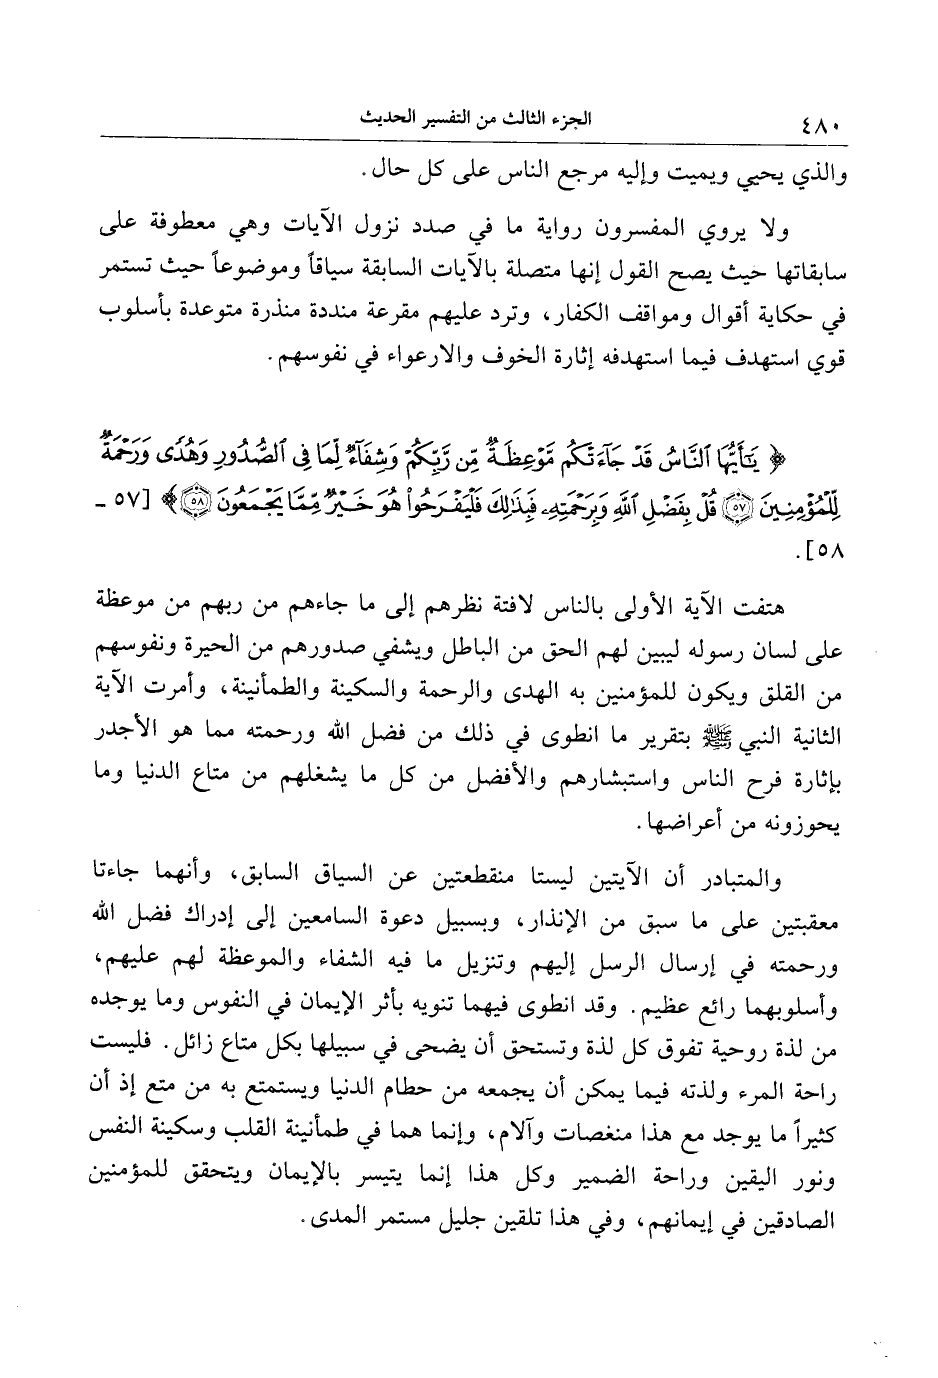 ٤٨٠ الجزء الثالث من التفسير الحديث
والذي يحيي ويميت وإليه مرجع الناس على كل حال.
ولا يروي المفسرون رواية ما في صدد نزول الآيات وهي معطوفة على
سابقاتها حيث يصح القول إنها متصلة بالآيات السابقة سياقاً وموضوعاً حيث تستمر
في حكاية أقوال ومواقف الكفار، وترد عليهم مقرعة منددة منذرة متوعدة بأسلوب
قوي استهدف فيما استهدفه إثارة الخوف والارعواء في نفوسهم.
﴿ يَـٰٓأَيُّهَا ٱلنَّاسُ قَدْ جَآءَتْكُم مَّوْعِظَةٌ مِّن رَّبِّكُمْ وَشِفَآءٌ لِّمَا فِى ٱلصُّدُورِ وَهُدًى وَرَحْمَةٌ
لِّلْمُؤْمِنِينَ ٥٧ قُلْ بِفَضْلِ ٱللَّهِ وَبِرَحْمَتِهِۦ فَبِذَٰلِكَ فَلْيَفْرَحُوا۟ هُوَ خَيْرٌ مِّمَّا يَجْمَعُونَ ٥٨ ﴾ [٥٧ ـ
٥٨].
هتفت الآية الأولى بالناس لافتة نظرهم إلى ما جاءهم من ربهم من موعظة
على لسان رسوله ليبين لهم الحق من الباطل ويشفي صدورهم من الحيرة ونفوسهم
من القلق ويكون للمؤمنين به الهدى والرحمة والسكينة والطمأنينة، وأمرت الآية
الثانية النبي ﷺ بتقرير ما انطوى في ذلك من فضل الله ورحمته مما هو الأجدر
بإثارة فرح الناس واستبشارهم والأفضل من كل ما يشغلهم من متاع الدنيا وما
يحوزونه من أعراضها.
والمتبادر أن الآيتين ليستا منقطعتين عن السياق السابق، وأنهما جاءتا
معقبتين على ما سبق من الإنذار، وبسبيل دعوة السامعين إلى إدراك فضل الله
ورحمته في إرسال الرسل إليهم وتنزيل ما فيه الشفاء والموعظة لهم عليهم،
وأسلوبهما رائع عظيم. وقد انطوى فيهما تنويه بأثر الإيمان في النفوس وما يوجده
من لذة روحية تفوق كل لذة وتستحق أن يضحى في سبيلها بكل متاع زائل. فليست
راحة المرء ولذته فيما يمكن أن يجمعه من حطام الدنيا ويستمتع به من متع إذ أن
كثيراً ما يوجد مع هذا منغصات وآلام، وإنما هما في طمأنينة القلب وسكينة النفس
ونور اليقين وراحة الضمير وكل هذا إنما يتيسر بالإيمان ويتحقق للمؤمنين
الصادقين في إيمانهم، وفي هذا تلقين جليل مستمر المدى.